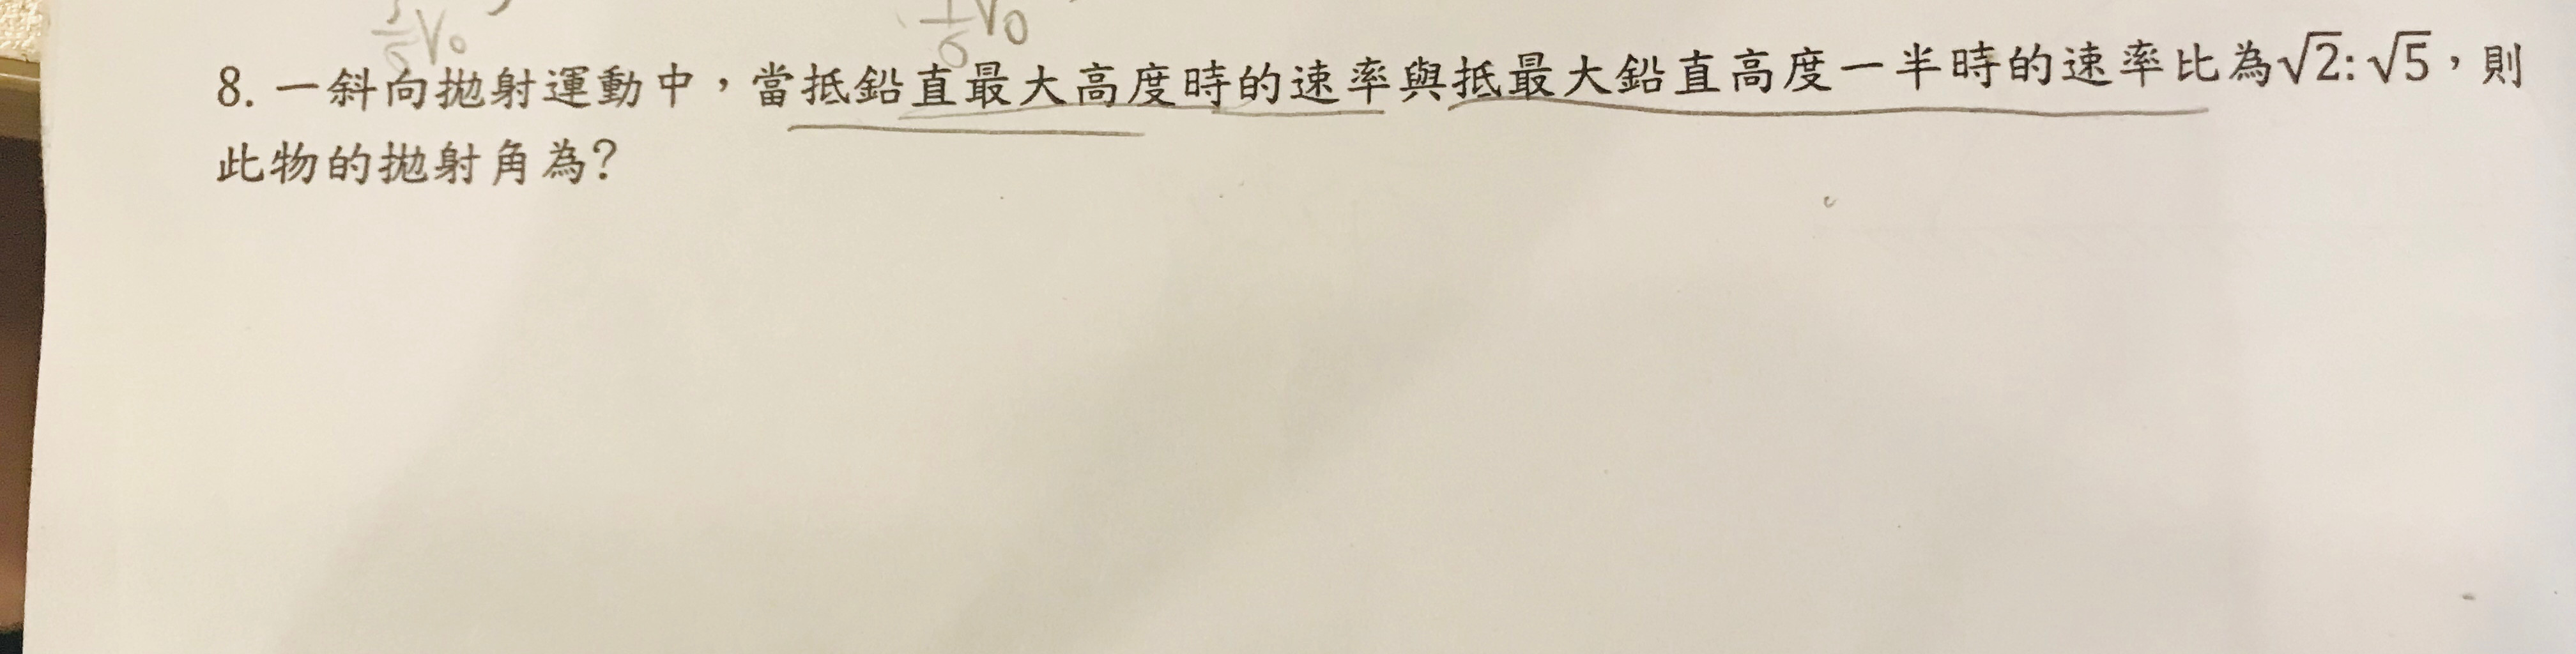 V₀ V₀
8. 一斜向拋射運動中，當抵鉛直最大高度時的速率與抵最大鉛直高度一半時的速率比為√2:√5，則
此物的拋射角為?